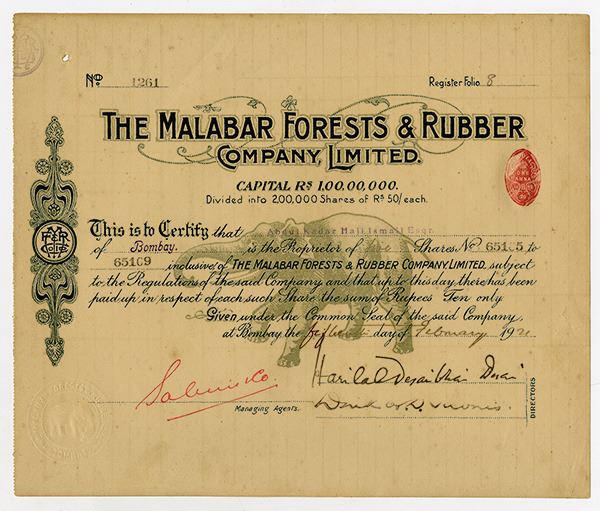 No 1261 Register Folio 8
THE MALABAR FORESTS & RUBBER
COMPANY, LIMITED.
CAPITAL Rs 1,00,00,000.
Divided into 200,000 Shares of Rs 50/each.
ONE
ANNA
This is to Certify that Abdul Kadar Haji Ismail Esqr.
of Bombay. is the Proprietor of Shares No 65105 to
65109 inclusive of THE MALABAR FORESTS & RUBBER COMPANY, LIMITED, subject
to the Regulations of the said Company and that up to this day there has been
paid up in respect of each such Share the sum of Rupees Ten only
Given under the Common Seal of the said Company,
at Bombay the fifteenth day of February 192
Harilal Desaibhai Desai
Managing Agents.
DIRECTORS